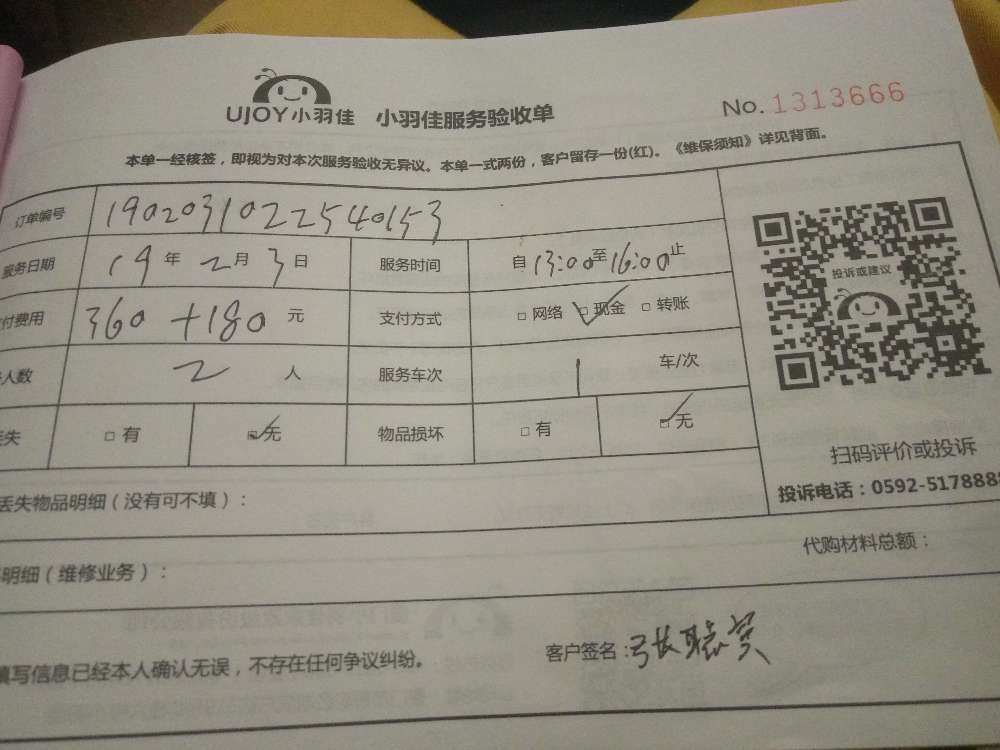 UJOY小羽佳 小羽佳服务验收单 No. 1313666
本单一经核签，即视为对本次服务验收无异议。本单一式两份，客户留存一份(红)。《维保须知》详见背面。
订单编号 19020310225440153
服务日期 19年2月3日 服务时间 自13:00至16:00止
付费用 360+180元 支付方式 □网络 □现金 □转账
人数 2人 服务车次 1 车/次
丢失 □有 □无 物品损坏 □有 □无
投诉或建议
扫码评价或投诉
投诉电话：0592-5178888
丢失物品明细（没有可不填）：
明细（维修业务）： 代购材料总额：
填写信息已经本人确认无误，不存在任何争议纠纷。 客户签名：张